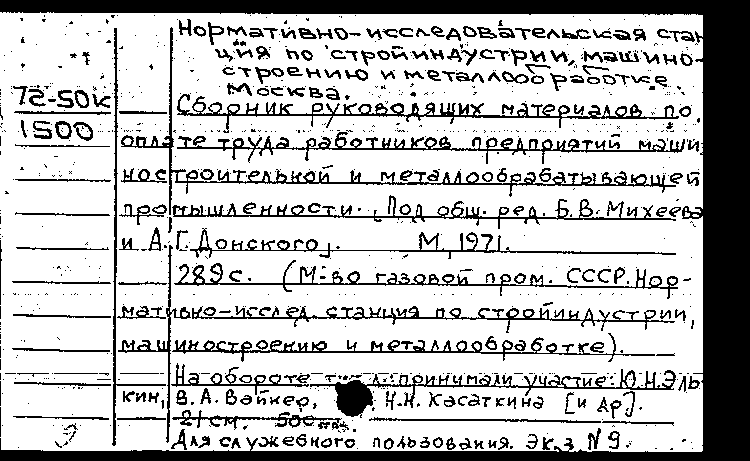 Нормативно-исследовательская стан
ция по стройиндустрии, машино-
строению и металлообработке.
Москва.
72-50к
Сборник руководящих материалов по
1500
оплате труда работников предприятий маши
ностроительной и металлообрабатывающей
промышленности. [Под общ. ред. Б.В. Михеева
и А.Г. Донского]. М, 1971.
289 с. (М-во газовой пром. СССР. Нор-
мативно-исслед. станция по стройиндустрии,
машиностроению и металлообработке).
На обороте принимали участие: Ю.Н. Эль-
кин, В.А. Вайнер, Н.Н. Касаткина [и др].
21 см. 500
Для служебного пользования. Экз. N 9.